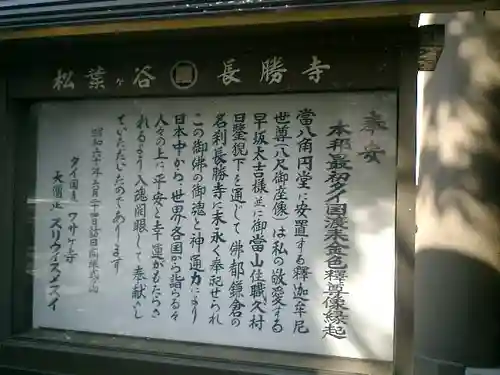 松葉ヶ谷 長勝寺
奉安
本邦最初タイ国渡来金色釋尊像縁起
當八角円堂に安置する釋迦牟尼
世尊(八尺御座像)は私の敬愛する
早坂太吉様並に御當山住職久村
日鑒猊下を通じて佛都鎌倉の
名刹長勝寺に末永く奉祀せられ
この御佛の御魂と神通力により
日本中から世界各国から詣らる々
人々の上に平安と幸運がもたらさ
れるよう入魂開眼して奉献し
ていただいたのであります
昭和六十年六月二十四日
タイ国
大僧正 スリウィスッヌスイ